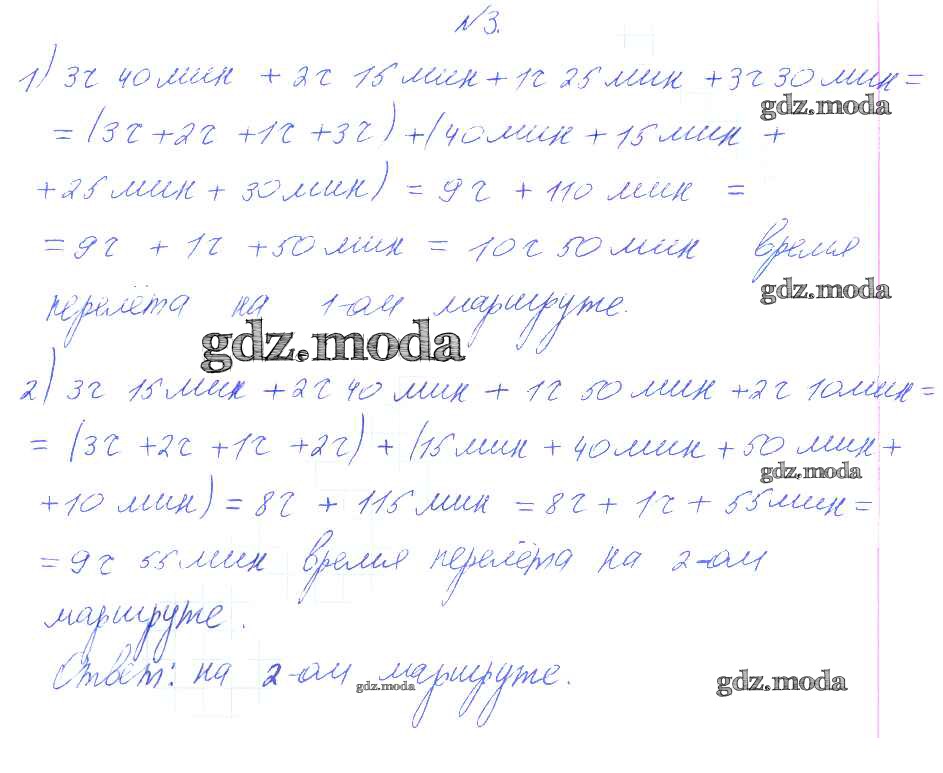 №3.
1) 3ч 40мин + 2ч 15мин + 1ч 25мин + 3ч 30мин =
gdz.moda
= (3ч + 2ч + 1ч + 3ч) + (40мин + 15мин +
+ 25мин + 30мин) = 9ч + 110 мин =
= 9ч + 1ч + 50мин = 10ч 50мин время
gdz.moda
перелёта на 1-ом маршруте.
gdz.moda
2) 3ч 15мин + 2ч 40 мин + 1ч 50 мин + 2ч 10мин =
= (3ч + 2ч + 1ч + 2ч) + (15мин + 40мин + 50 мин +
gdz.moda
+ 10 мин) = 8ч + 115 мин = 8ч + 1ч + 55мин =
= 9ч 55мин время перелёта на 2-ом
маршруте.
Ответ: на 2-ом маршруте.
gdz.moda
gdz.moda